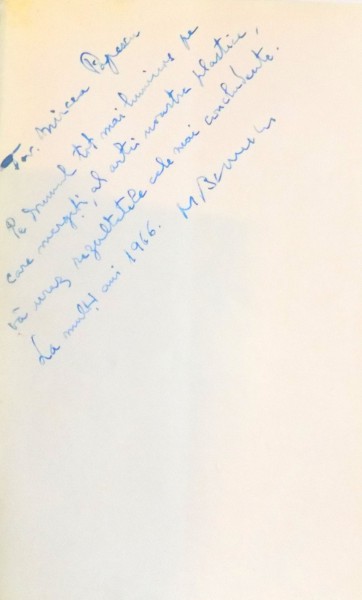 Tov. Mircea Popescu
Pe drumul tot mai luminos pe
care mergeți, al artei noastre plastice,
vă urez rezultatele cele mai concludente.
La mulți ani 1966.